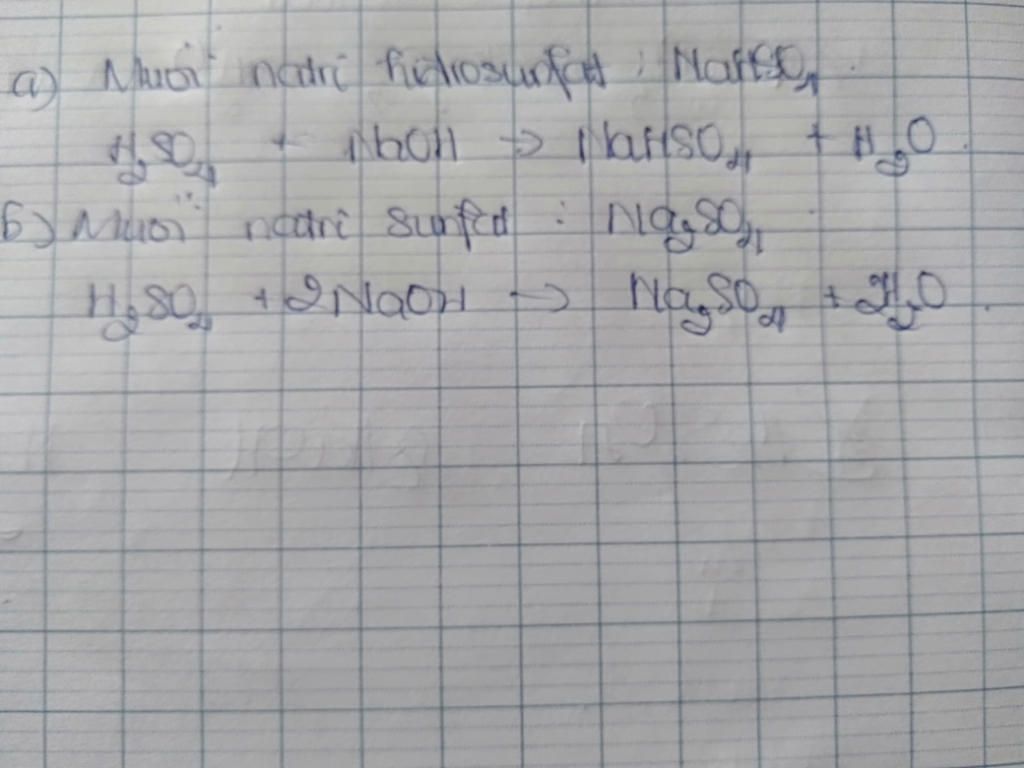 a) Muối natri hiđrosunfat : NaHSO₄.
H₂SO₄ + NaOH → NaHSO₄ + H₂O.
b) Muối natri sunfat : Na₂SO₄
H₂SO₄ + 2NaOH → Na₂SO₄ + 2H₂O.